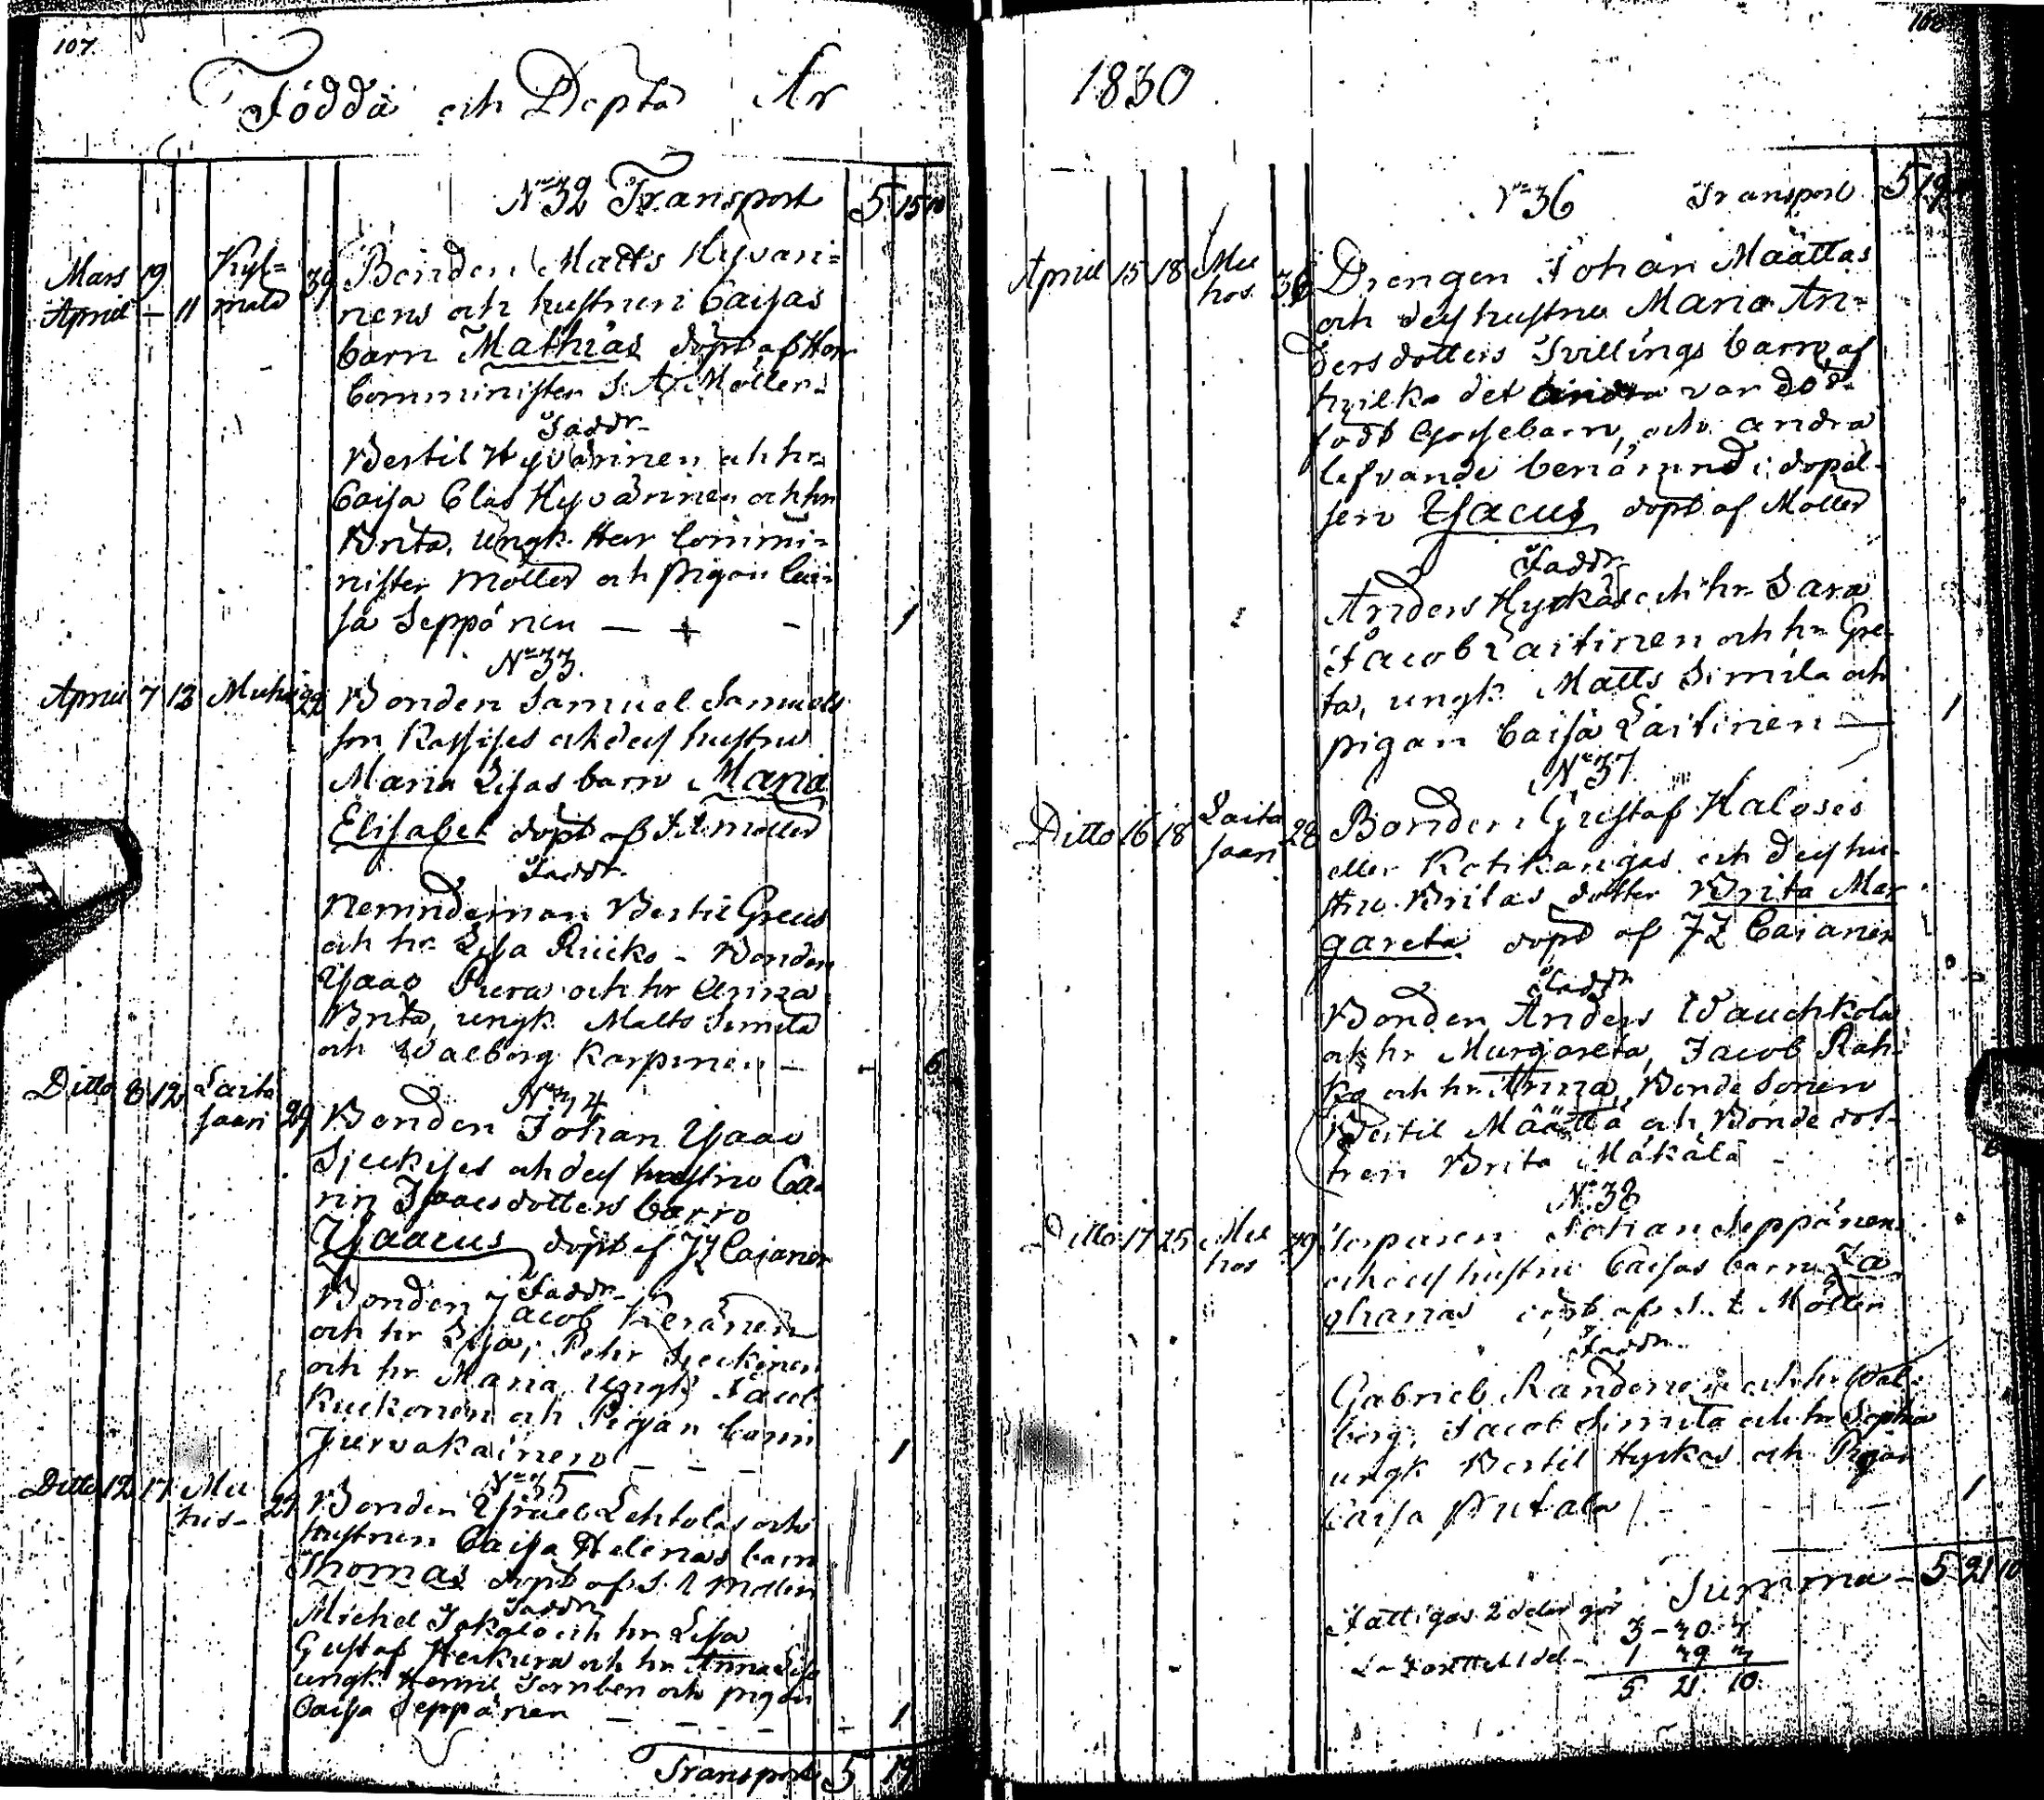 107.
Födda och Döpta År
N= 32 Transport 5 15 10
Mars 19 Kyl= 39 Bonden Matts Hyväri=
April – 11 mälä nens och hustrun Caisas
barn Mathias döpt af Herr
Comminister S. A. Möller.
Faddr.
Bertil Hyvärinen och hr
Caisa Clas Hyvärinen och hr
Brita, ungk. Herr Commi=
nister Möller och pigan Cai=
sa Seppänen — + - 1
N= 33.
April 7 12 Muhos Bonden Samuel Samuels
son Kassises och dess hustru
Maria Lisas barn Maria
Elisabet döpt af Möller
Faddr.
Nemndeman Bertil Greus
och hr. Lisa Riicko - Bonden
Isaac Pura och hr Anna
Brita, ungk. Matts Simila
och Walborg Karpinen — - 6
N= 34
Ditto 8 12 Laita Bonden Johan Isaac
saari 29 Sjeckises och dess hustru Ca
rin Isaacsdotters barn
Isaacus döpt af JZ Cajaner
Faddr.
Bonden Jacob Keränen
och hr Lisa, Pehr Sjeckinen
och hr. Maria, ungk. Jacob
Kuckonen och Pigan Carin
Jurvakainen - - - 1
N= 35
Ditto 12 17 Mu Bonden Israel Lehtolas och
hos- 27 hustrun Caisa Helenas barn
Thomas döpt af S. A Möller
Faddr
Michel Jokela och hr Lisa
Gustaf Heikura och hr Anna Lisa
ungk. Henric Tornberg och pigan
Caisa Seppänen — - - - - 1
Transport 5 19
1830
N= 36 Transport 5 19
April 15 18 Mu Drengen Johan Määttas
hos 36 och dess hustru Maria An=
dersdotters Tvillings barn, af
hvilka det andra var död-
födt Gossebarn, och andra
lefvande benämnd i dopel-
sen Isacus döpt af Möller
Faddr
Anders Hyrkäs och hr. Sara
Jacob Laitinen och hr Gre
ta, ungk. Matts Simila och
pigan Caisa Laitinen — 1
N= 37
Ditto 16 18 Laita Bonden Gustaf Haloses
saari 28 eller Kotikangas och dess hu-
stru Britas dotter Brita Mar
gareta döpt af JZ Cajaner
Faddr
Bonden Anders Wauhkola
och hr Margareta, Jacob Rah-
ko och hr. Anna, Bonde Sonen
Bertil Määttä och Bonde dot-
tren Brita Mäkälä - - 6
N= 38
Ditto 17 25 Mu Torparen Johan Seppänens
hos 29 och dess hustru Caisas barn Za
charias döpt af S. A. Möller
Faddr.
Gabriel Randonen och hr Wal=
borg, Jacob Simila och hr Sophia
ungk Bertil Hyrkas och Pigan
Caisa - - - - 1
Summa - 5 21 10
Fattigas 2 delar gör 3 - 30. 7
1 del - 1 39 3
5 21. 10.